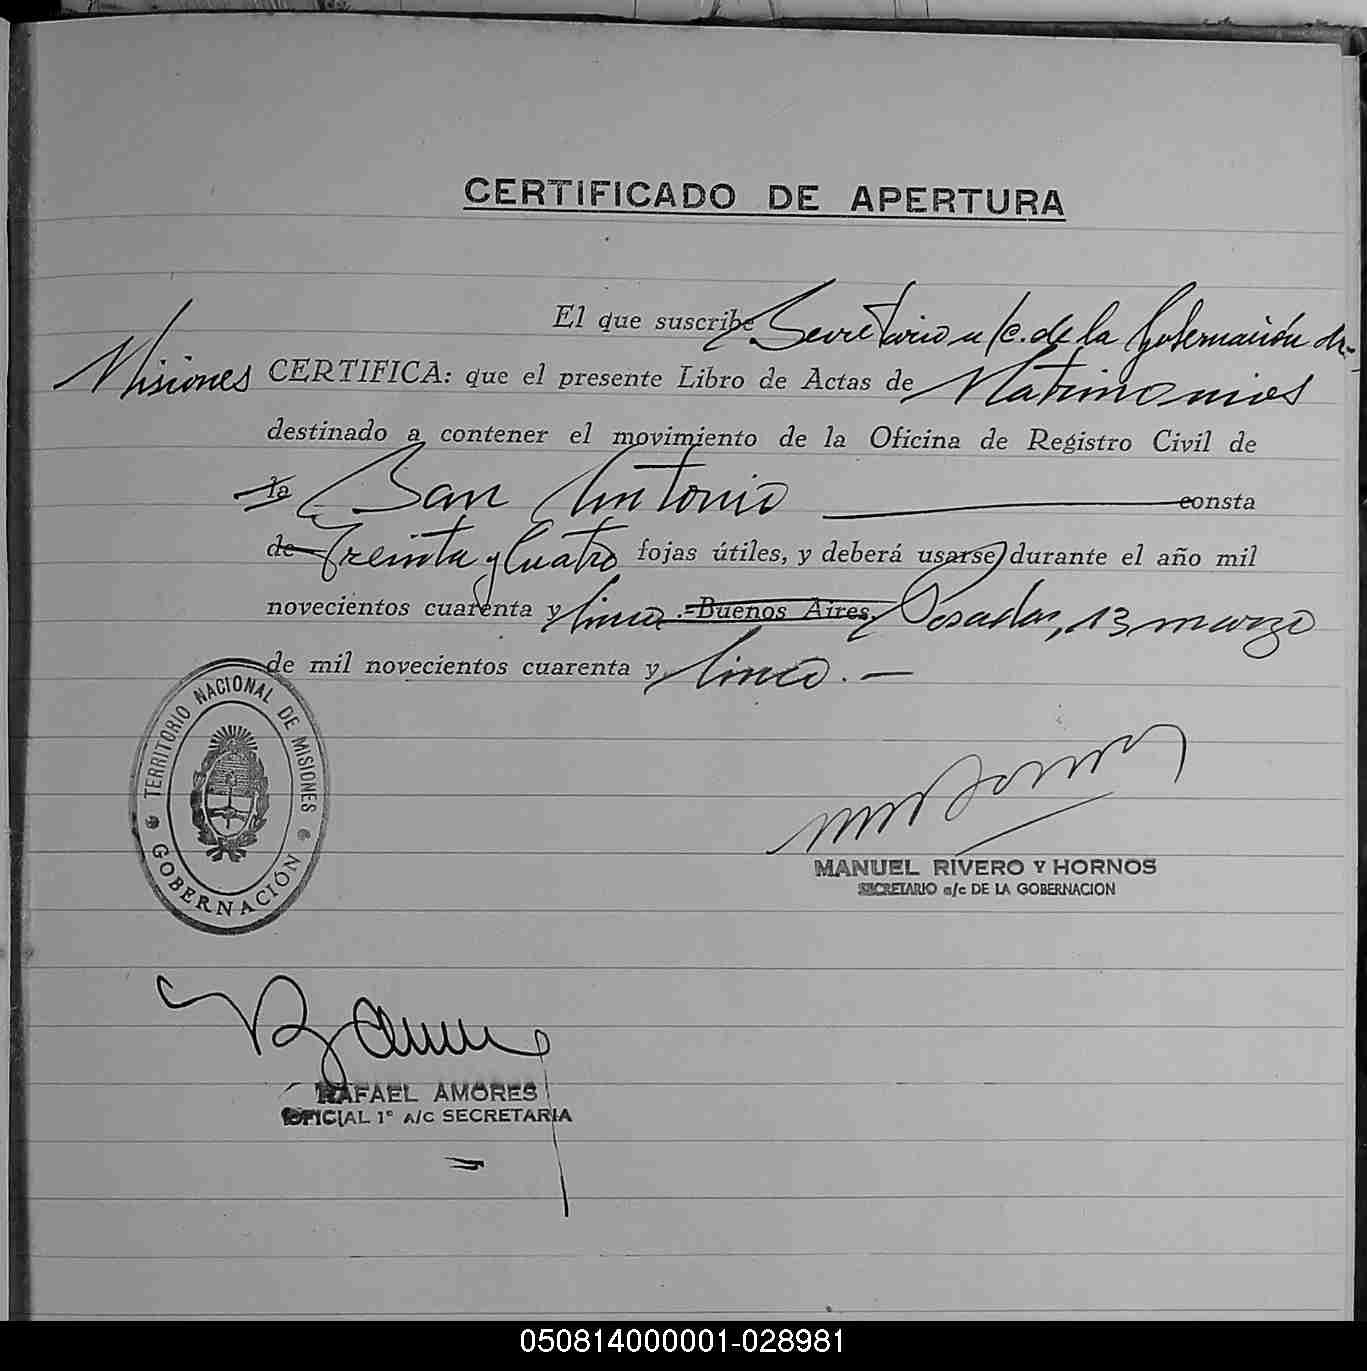 CERTIFICADO DE APERTURA
El que suscribe Secretario a/c. de la Gobernación de
Misiones CERTIFICA: que el presente Libro de Actas de Matrimonios
destinado a contener el movimiento de la Oficina de Registro Civil de
la San Antonio consta
de Treinta y Cuatro fojas útiles, y deberá usarse durante el año mil
novecientos cuarenta y Cinco. Buenos Aires, Posadas, 13 marzo
de mil novecientos cuarenta y Cinco.-
TERRITORIO NACIONAL DE MISIONES
GOBERNACIÓN
MANUEL RIVERO Y HORNOS
SECRETARIO a/c DE LA GOBERNACION
RAFAEL AMORES
OFICIAL 1° A/C SECRETARIA
050814000001-028981